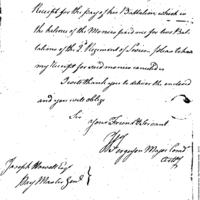 Receipt for the pay of his Battalion, which is
the ballance of the Monies paid me for two Bat-
talions of the 2d Regiment of
my Receipt for said monies
I will thank you to deliver the enclosed
and you will oblige
Sir
Your Friend & Servant
Ferguson Major Comd
Arty
Joseph Howell Esqr
Pay Master Genl